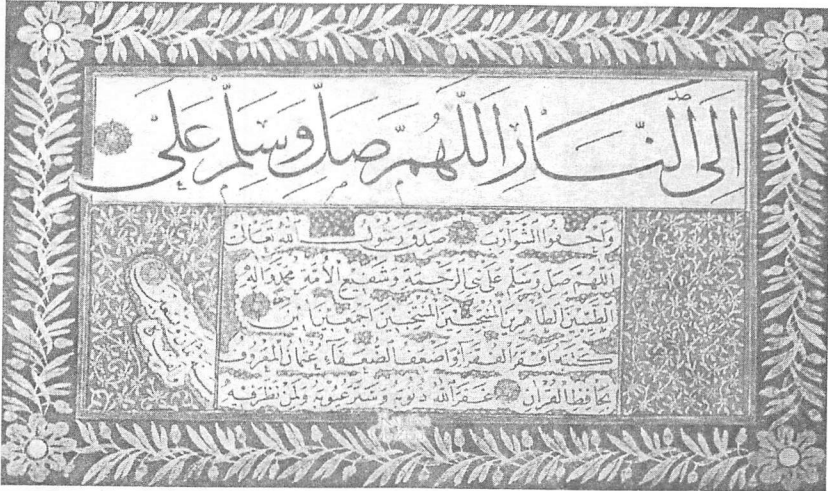 اِلَى النَّارِ اللّٰهُمَّ صَلِّ وَسَلِّمْ عَلٰى
وَاحفوا الشَّوارِبَ صدق رسول الله تعالى
اللهم صل وسلم على نبي الرحمة وشفيع الأمة محمد وآله
الطيبين الطاهرين المنتجبين اجمعين
كتبه افقر الفقراء واضعف الضعفاء عثمان المعروف
بحافظ القرآن غفر الله ذنوبه وستر عيوبه ولمن نظر فيه